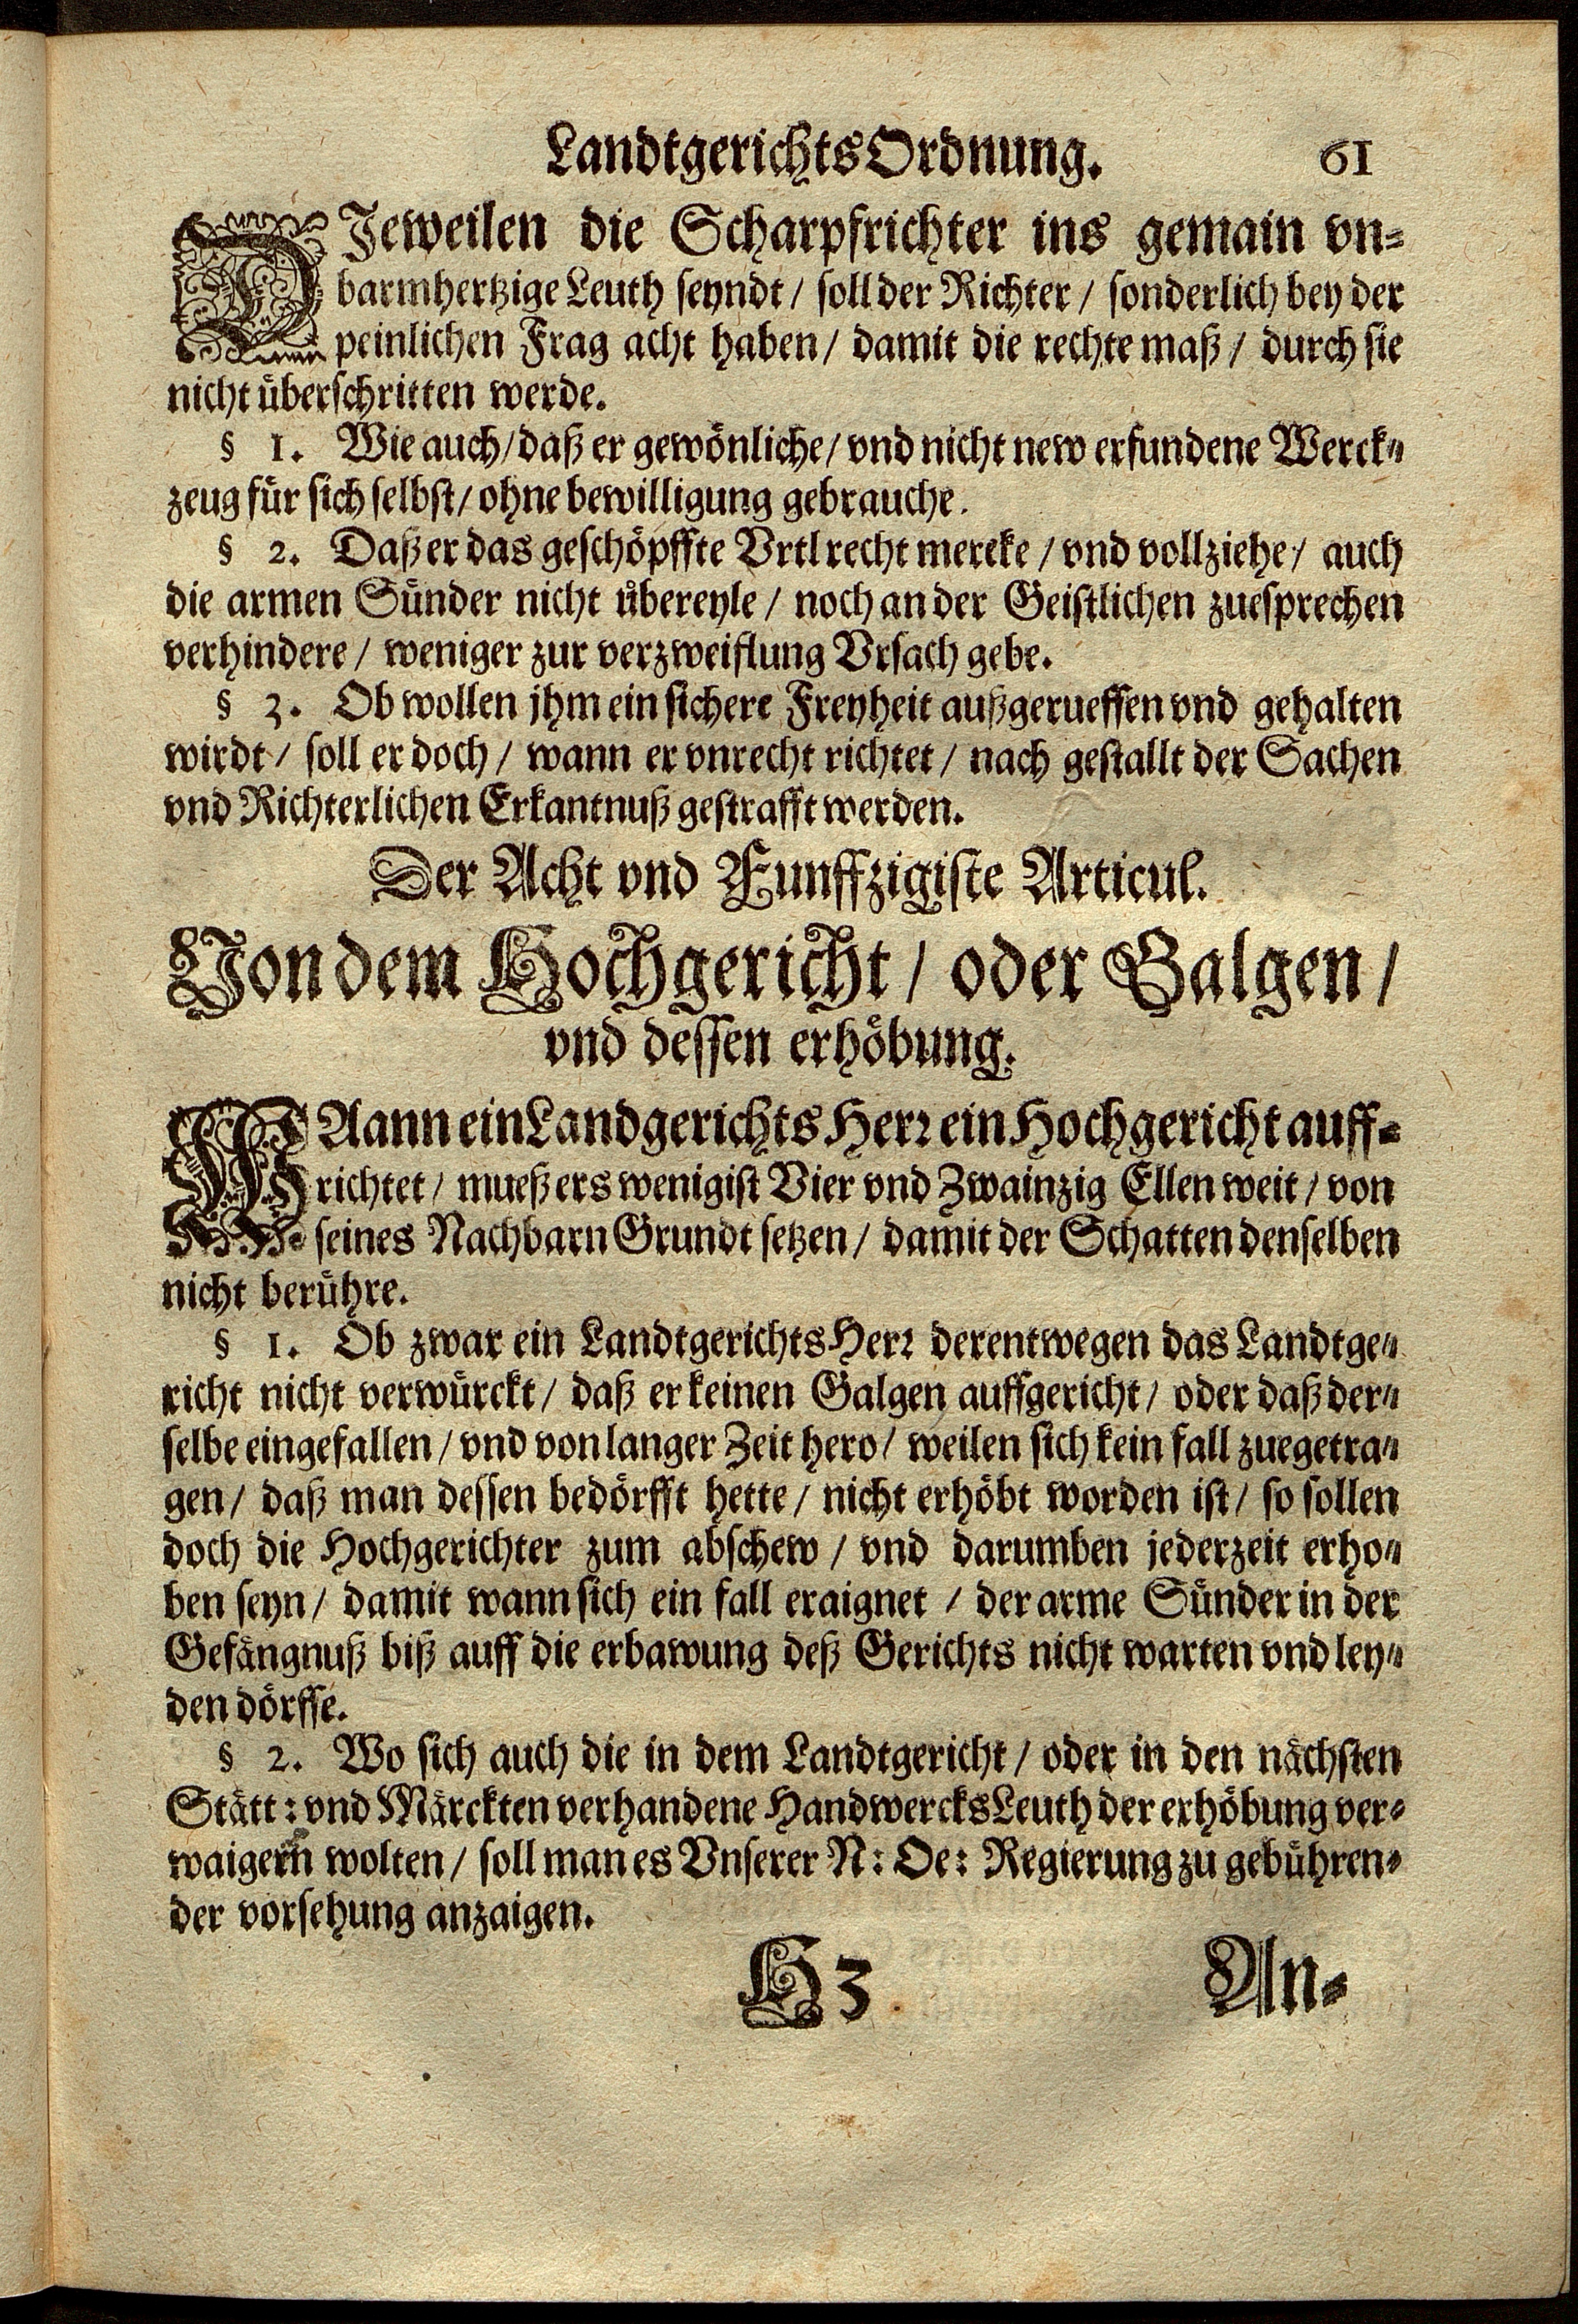 LandtgerichtsOrdnung. 61
DJeweilen die Scharpfrichter ins gemain vn-
barmhertzige Leuth seyndt / soll der Richter / sonderlich bey der
peinlichen Frag acht haben / damit die rechte maß / durch sie
nicht überschritten werde.
§ 1. Wie auch / daß er gewönliche / vnd nicht new erfundene Werck-
zeug für sich selbst / ohne bewilligung gebrauche.
§ 2. Daß er das geschöpffte Vrtl recht mercke / vnd vollziehe / auch
die armen Sünder nicht übereyle / noch an der Geistlichen zuesprechen
verhindere / weniger zur verzweiflung Vrsach gebe.
§ 3. Ob wollen jhm ein sichere Freyheit außgerueffen vnd gehalten
wirdt / soll er doch / wann er vnrecht richtet / nach gestallt der Sachen
vnd Richterlichen Erkantnuß gestrafft werden.
Der Acht vnd Funffzigiste Articul.
Von dem Hochgericht / oder Galgen /
vnd dessen erhöbung.
WAann ein Landgerichts Herr ein Hochgericht auff-
richtet / mueß ers wenigist Vier vnd Zwainzig Ellen weit / von
seines Nachbarn Grundt setzen / damit der Schatten denselben
nicht berühre.
§ 1. Ob zwar ein LandtgerichtsHerr derentwegen das Landtge-
richt nicht verwürckt / daß er keinen Galgen auffgericht / oder daß der-
selbe eingefallen / vnd von langer Zeit hero / weilen sich kein fall zuegetra-
gen / daß man dessen bedörfft hette / nicht erhöbt worden ist / so sollen
doch die Hochgerichter zum abschew / vnd darumben jederzeit erho-
ben seyn / damit wann sich ein fall eraignet / der arme Sünder in der
Gefängnuß biß auff die erbawung deß Gerichts nicht warten vnd ley-
den dörffe.
§ 2. Wo sich auch die in dem Landtgericht / oder in den nächsten
Stätt: vnd Märckten verhandene HandwercksLeuth der erhöbung ver-
waigern wolten / soll man es Vnserer N: Oe: Regierung zu gebühren-
der vorsehung anzaigen.
H3 An-